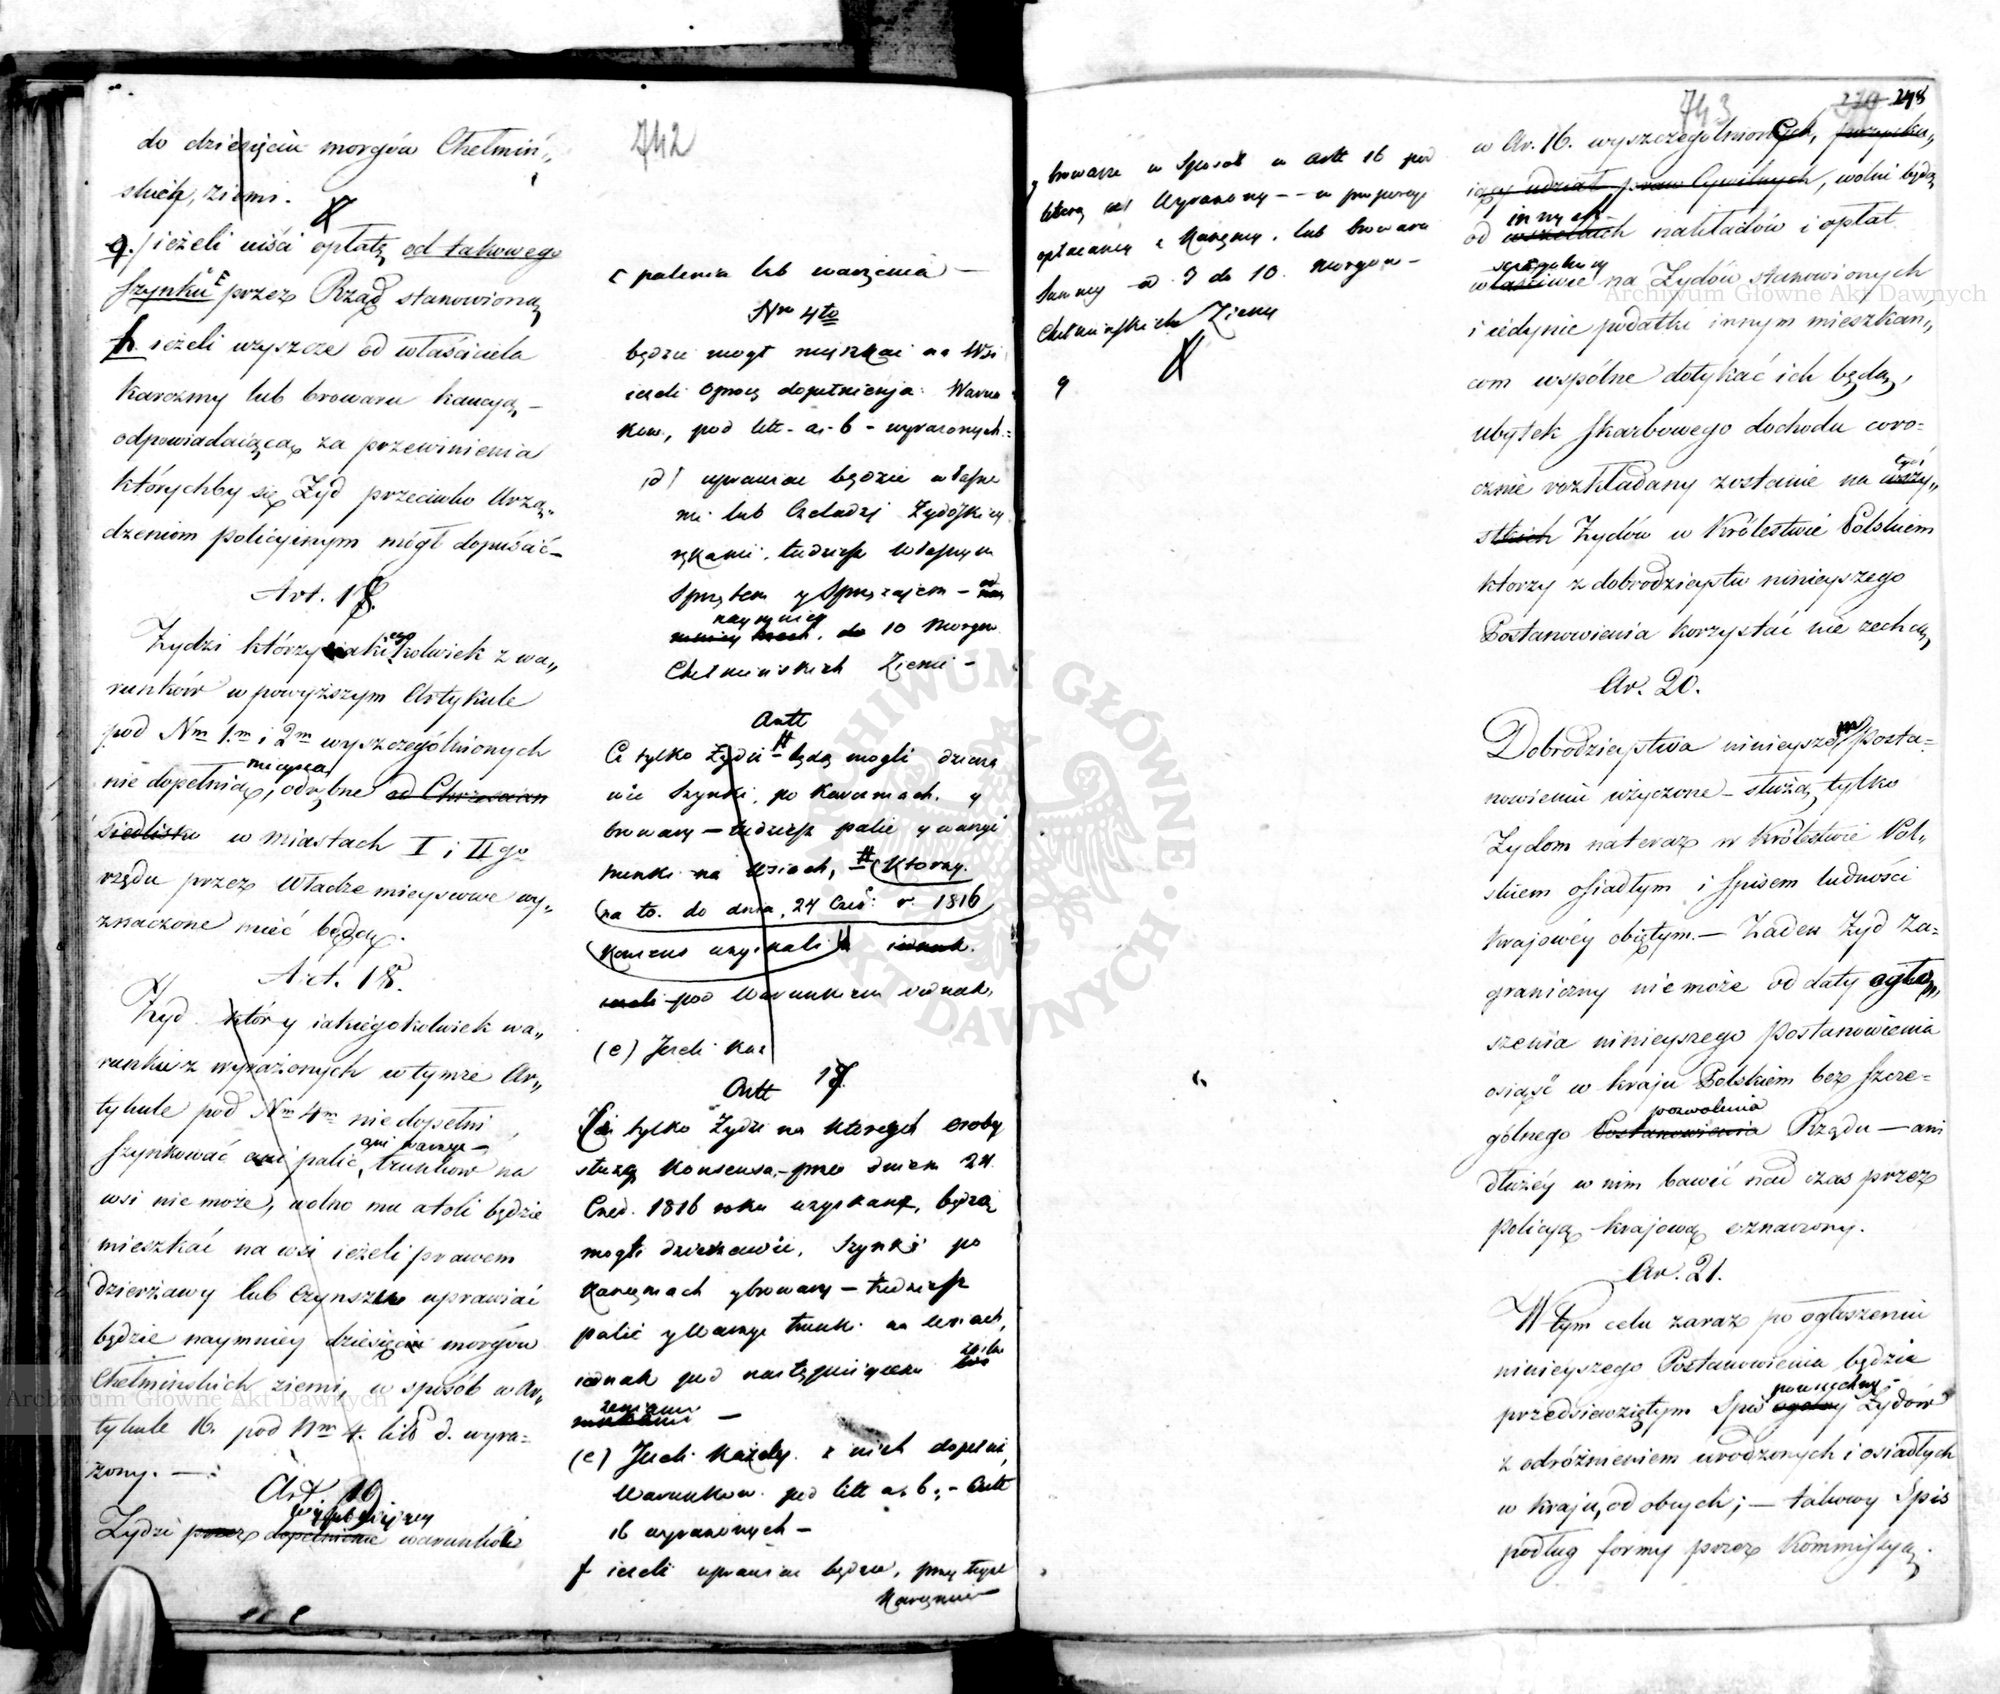 do dziesięciu morgów Chełmiń„
skich, ziemi.
g.) ieżeli uiści opłatę od takowego
szynku przez Rząd stanowioną
h. ieżeli wyszcze od właściciela
karczmy lub browaru kaucyą –
odpowiadaiącą za przewinienia
którychby się Żyd przeciwko Urzą„
dzeniom policyinym mógł dopuścić –
Art. 18.
Żydzi którzy iakiegokolwiek z wa„
runków w powyższym Artykule
pod Nm 1.m i 2m wyszczególnionych
nie dopełnią, miejsca odrębne od Chrześcian
siedlisko w miastach I i IIgo
rzędu przez Władze mieyscowe wy„
znaczone mieć będą.
Art. 18.
Żyd który iakiegokolwiek wa„
runku z wyrażonych w tymże Ar„
tykule pod Nm 4m niedopełni
szynkować ani palić, ani trunków na
wsi nie może, wolno mu atoli będzie
mieszkać na wsi ieżeli prawem
dzierżawy lub czynszu uprawiać
będzie naymniey dziesięciu morgów
Chełmińskich ziemi, w sposób w Ar„
tykule 16. pod Nm 4. lit. d. wyra=
żony. –
Art. 19
Żydzi przez dopełnienie warunków
742
c palenia lub warzenia –
Nro 4to
będzie mogł mięszkać na Wsi
ieżeli oprocz dopełnienia Warun
kow, pod litt. a. b – wyrażonych =
d) uprawiac będzie własne
mi lub Czeladzi Żydoskiey
rękami, tudziesz własnym
Sprzętem y Sprzężajem – od
naymniey do 10 Morgow
Chełminskich Ziemi –
Artt
Ci tylko Żydzi będą mogli dzierża
wić Szynki, po Karczmach, y
browary – tudziesz palić y warzyć
trunki na Wsiach, # Ktorzy
na to. do dnia, 24 Czer: r. 1816
Konsens uzyskali iednak.
ieżeli pod Warunkiem iednak,
(e) Jeżeli Kaz
Artt 17.
Ci tylko Żydzi na ktorych osoby
służą Konsensa, – przed dniem 24
Czer. 1816 roku uzyskane, będą
mogli dzierżawić, Szynki po
Karczmach y browary – tudziesz
palić y Warzyć trunki na Wsiach,
iednak pod następuiącemi
(e) Jeżeli Każdy z nich dopełni
Warunkow pod litt a. b. – Artt
16 wyrażonych –
f ieżeli uprawiać będzie, przy teyże
Karczmie
743
270 248
y browarze w Sposob w Artt 16 pod
literą wyrażony – w proporcyi
opłacaney z Karczmy, lub browaru
Summy od 3 do 10. Morgow –
Chełminskich Ziemi
g
w Ar. 16. wyszczególnionych, pozysku„
iący udział praw Cywilnych, wolni będą
od innych wszelkich nakładów i opłat
szczególniey właściwie na Żydów stanowionych
i iedynie podatki innym mieszkań„
com wspólne dotykać ich będą,
ubytek skarbowego dochodu coro=
cznie rozkładany zostanie na tych wszy„
stkich Żydów w Królestwie Polskiem
ktorzy z dobrodzieystw ninieyszego
Postanowienia korzystać nie zechcą,
Ar. 20.
Dobrodzieystwa ninieyszem Posta=
nowieniem użyczone – służą tylko
Żydom nateraz w Królestwie Pol„
skiem osiadłym i spisem ludności
krajowéy obiętym. – Żaden Żyd za=
graniczny nie może od daty ogło„
szenia ninieyszego Postanowienia
osiąść w kraju Polskiem bez szcze=
gólnego pozwolenia Postanowienia Rządu – ani
dłużéy w nim bawić nad czas przez
policyą krajową oznaczony.
Ar. 21.
W tym celu zaraz po ogłoszeniu
ninieyszego Postanowienia będzie
przedsiewziętym Spis powszechny ogólny Żydów
z odróżnieniem urodzonych i osiadłych
w kraju, od obcych; – takowy Spis
podług formy przez Kommissyą.
Archiwum Główne Akt Dawnych